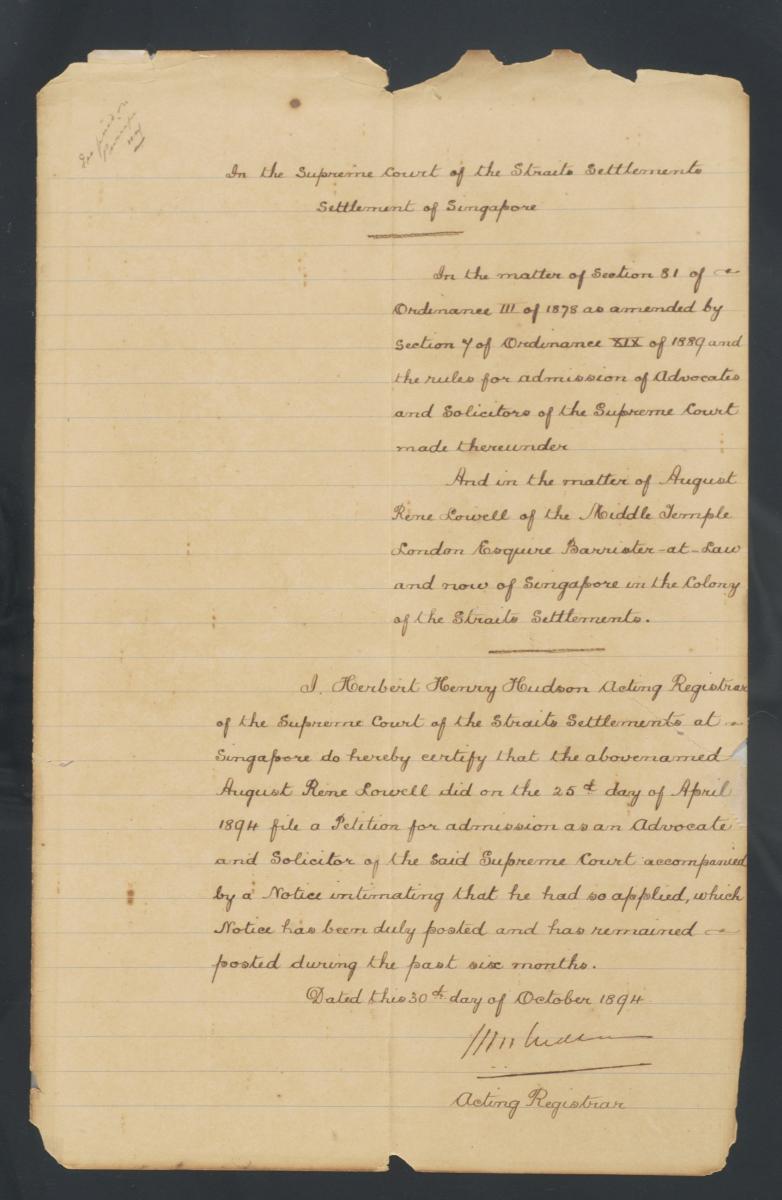 In the Supreme Court of the Straits Settlements
Settlement of Singapore
In the matter of Section 81 of
Ordinance III of 1878 as amended by
Section 7 of Ordinance XIX of 1889 and
the rules for admission of Advocates
and Solicitors of the Supreme Court
made thereunder
And in the matter of August
Rene Lowell of the Middle Temple
London Esquire Barrister-at-Law
and now of Singapore in the Colony
of the Straits Settlements.
I, Herbert Henry Hudson Acting Registrar
of the Supreme Court of the Straits Settlements at
Singapore do hereby certify that the abovenamed
August Rene Lowell did on the 25th day of April
1894 file a Petition for admission as an Advocate
and Solicitor of the said Supreme Court accompanied
by a Notice intimating that he had so applied, which
Notice has been duly posted and has remained
posted during the past six months.
Dated this 30th day of October 1894
HH Hudson
Acting Registrar